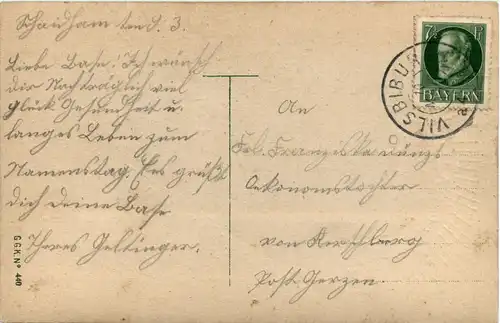 Schaidham den 8. 3.
Liebe Base! Ich wünsch
dir Nachträglich viel
glück Gesundheit u.
langes Leben zum
Namenstag. Es grüßt
dich deine Base
Theres Geltinger.
G.G.K. Nº 440
7½ PF
BAYERN
VILSBIBURG
An
Frl. Franziska
Oekonomstochter
von
Post Gerzen.